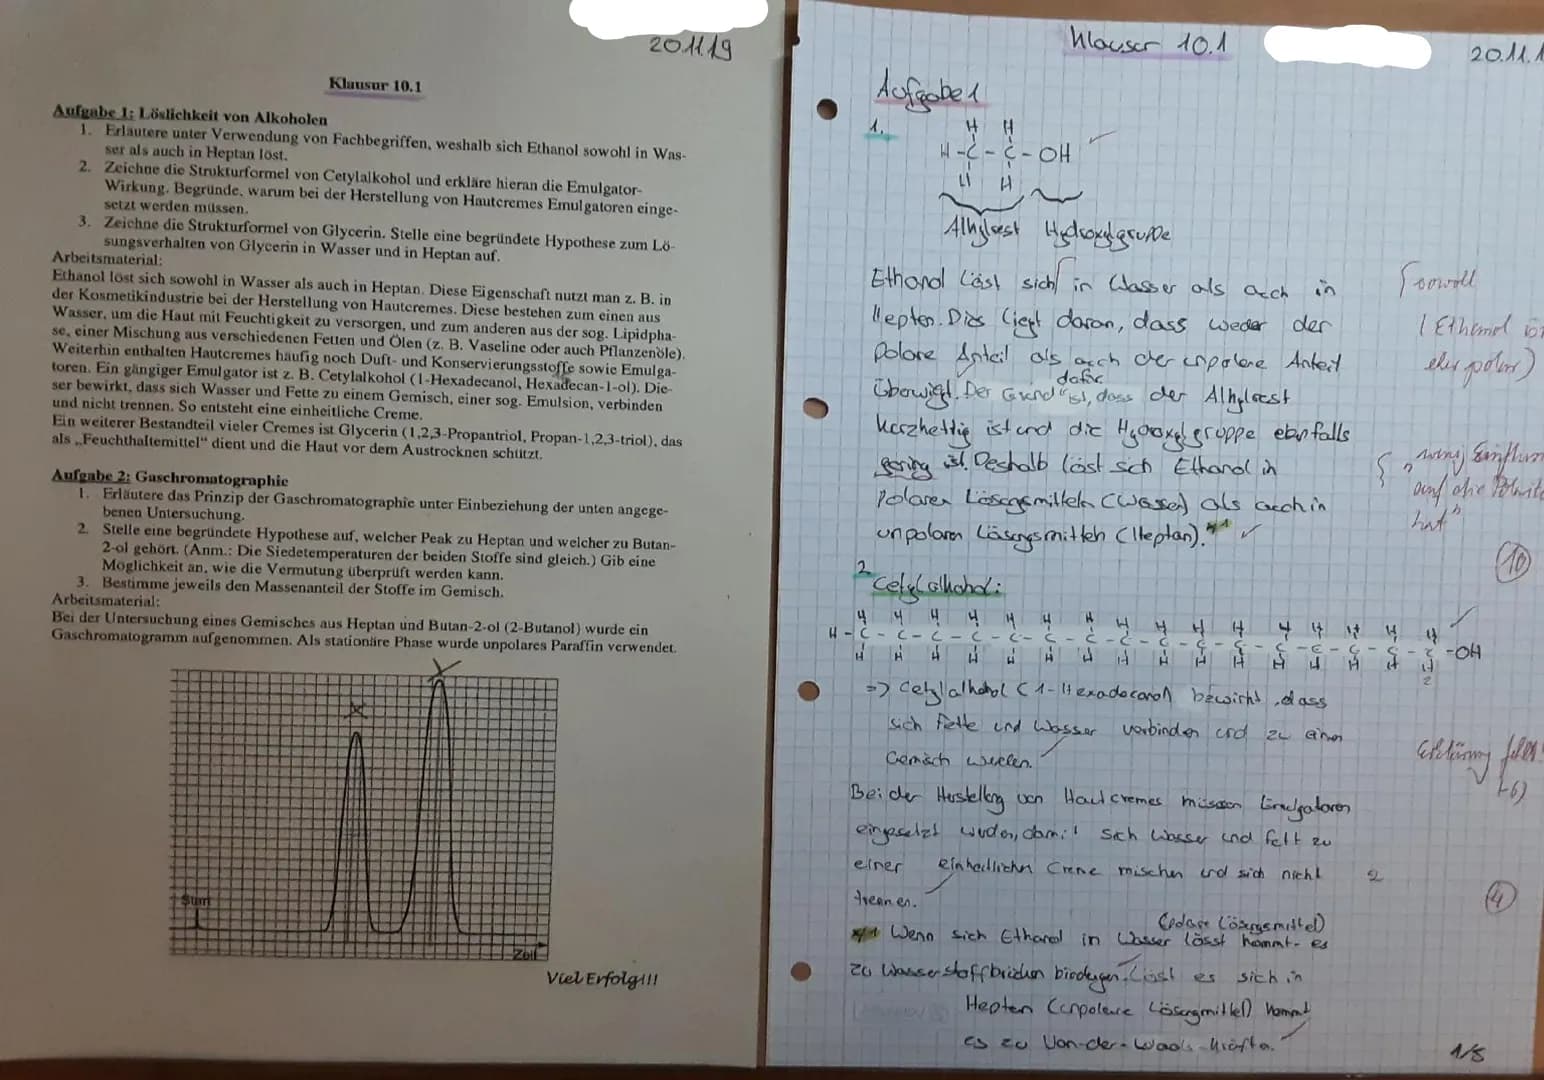 20.11.19
Klausur 10.1
Aufgabe 1: Löslichkeit von Alkoholen
1. Erläutere unter Verwendung von Fachbegriffen, weshalb sich Ethanol sowohl in Was-
ser als auch in Heptan löst.
2. Zeichne die Strukturformel von Cetylalkohol und erkläre hieran die Emulgator-
Wirkung. Begründe, warum bei der Herstellung von Hautcremes Emulgatoren einge-
setzt werden müssen.
3. Zeichne die Strukturformel von Glycerin. Stelle eine begründete Hypothese zum Lö-
sungsverhalten von Glycerin in Wasser und in Heptan auf.
Arbeitsmaterial:
Ethanol löst sich sowohl in Wasser als auch in Heptan. Diese Eigenschaft nutzt man z. B. in
der Kosmetikindustrie bei der Herstellung von Hautcremes. Diese bestehen zum einen aus
Wasser, um die Haut mit Feuchtigkeit zu versorgen, und zum anderen aus der sog. Lipidpha-
se, einer Mischung aus verschiedenen Fetten und Ölen (z. B. Vaseline oder auch Pflanzenöle).
Weiterhin enthalten Hautcremes häufig noch Duft- und Konservierungsstoffe sowie Emulga-
toren. Ein gängiger Emulgator ist z. B. Cetylalkohol (1-Hexadecanol, Hexadecan-1-ol). Die-
ser bewirkt, dass sich Wasser und Fette zu einem Gemisch, einer sog. Emulsion, verbinden
und nicht trennen. So entsteht eine einheitliche Creme.
Ein weiterer Bestandteil vieler Cremes ist Glycerin (1,2,3-Propantriol, Propan-1,2,3-triol), das
als „Feuchthaltemittel“ dient und die Haut vor dem Austrocknen schützt.
Aufgabe 2: Gaschromatographie
1. Erläutere das Prinzip der Gaschromatographie unter Einbeziehung der unten angege-
benen Untersuchung.
2. Stelle eine begründete Hypothese auf, welcher Peak zu Heptan und welcher zu Butan-
2-ol gehört. (Anm.: Die Siedetemperaturen der beiden Stoffe sind gleich.) Gib eine
Möglichkeit an, wie die Vermutung überprüft werden kann.
3. Bestimme jeweils den Massenanteil der Stoffe im Gemisch.
Arbeitsmaterial:
Bei der Untersuchung eines Gemisches aus Heptan und Butan-2-ol (2-Butanol) wurde ein
Gaschromatogramm aufgenommen. Als stationäre Phase wurde unpolares Paraffin verwendet.
Start
Zeit
Viel Erfolg!!!
Klausur 10.1
20.11.1
Aufgabe 1
1.
H H
H-C-C-OH
H H
Alkylrest Hydroxylgruppe
Ethanol löst sich in Wasser als auch in
Heptan. Dies liegt daran, dass weder der
Polare Anteil als auch der unpolare Anteil
überwiegt. Der Grund dafür ist, dass der Alkylrest
kurzkettig ist und die Hydroxylgruppe ebenfalls
gering ist. Deshalb löst sich Ethanol in
Polaren Lösungsmitteln (Wasser) als auch in
unpolaren Lösungsmitteln (Heptan). *1
sowohl
(Ethanol ist
eher polar)
wenig Einfluss
auf die Polarität
hat"
10
2
Cetylalkohol:
H H H H H H H H H H H H H H H H
H-C-C-C-C-C-C-C-C-C-C-C-C-C-C-C-C-OH
H H H H H H H H H H H H H H H H
2
=> Cetylalkohol (1-Hexadecanol) bewirkt, dass
sich Fette und Wasser verbinden und zu einem
Gemisch werden.
Erklärung fehlt!
(-6)
Bei der Herstellung von Hautcremes müssen Emulgatoren
eingesetzt werden, damit sich Wasser und Fett zu
einer einheitlichen Creme mischen und sich nicht
trennen.
2
4
*1 Wenn sich Ethanol in Wasser (Polare Lösungsmittel) lösst kommt es
zu Wasserstoffbrücken bindungen. Löst es sich in
Heptan (unpolare Lösungmittel) kommt
es zu Van-der-Waals-Kräften.
1/5